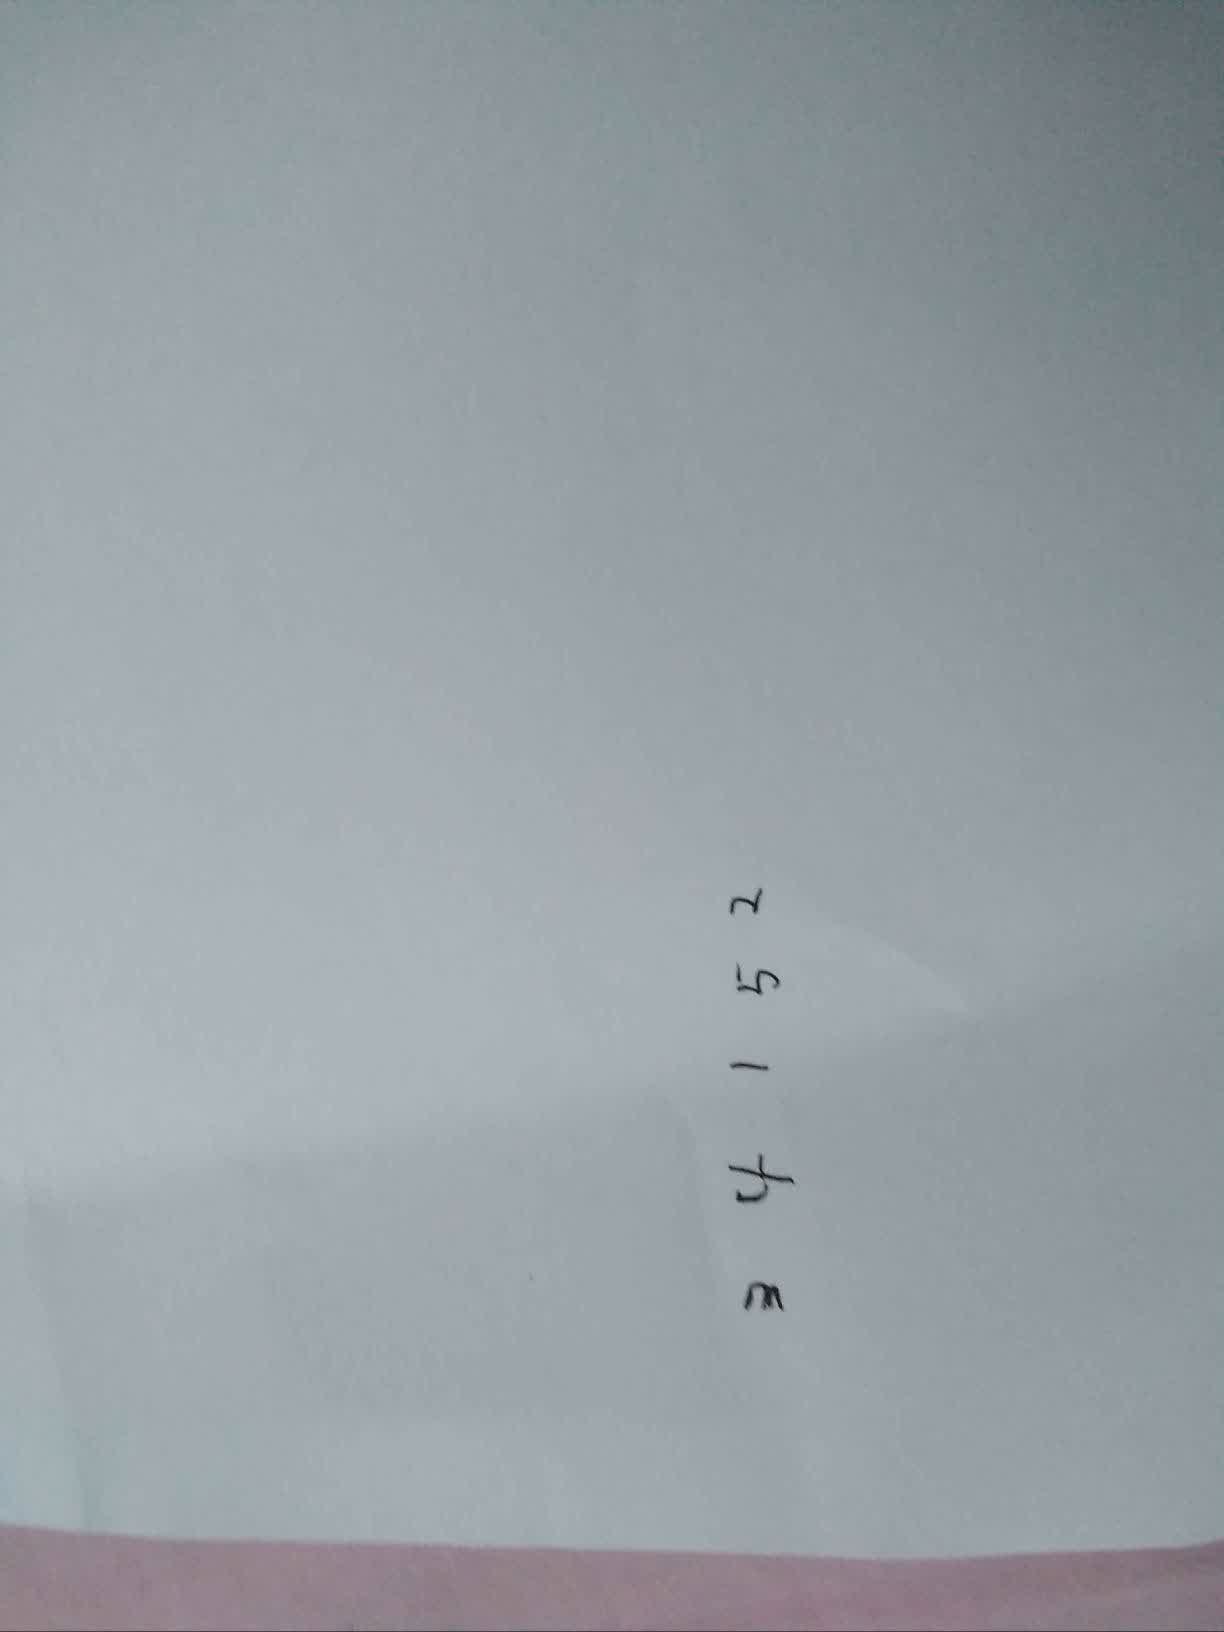 3 4 1 5 2